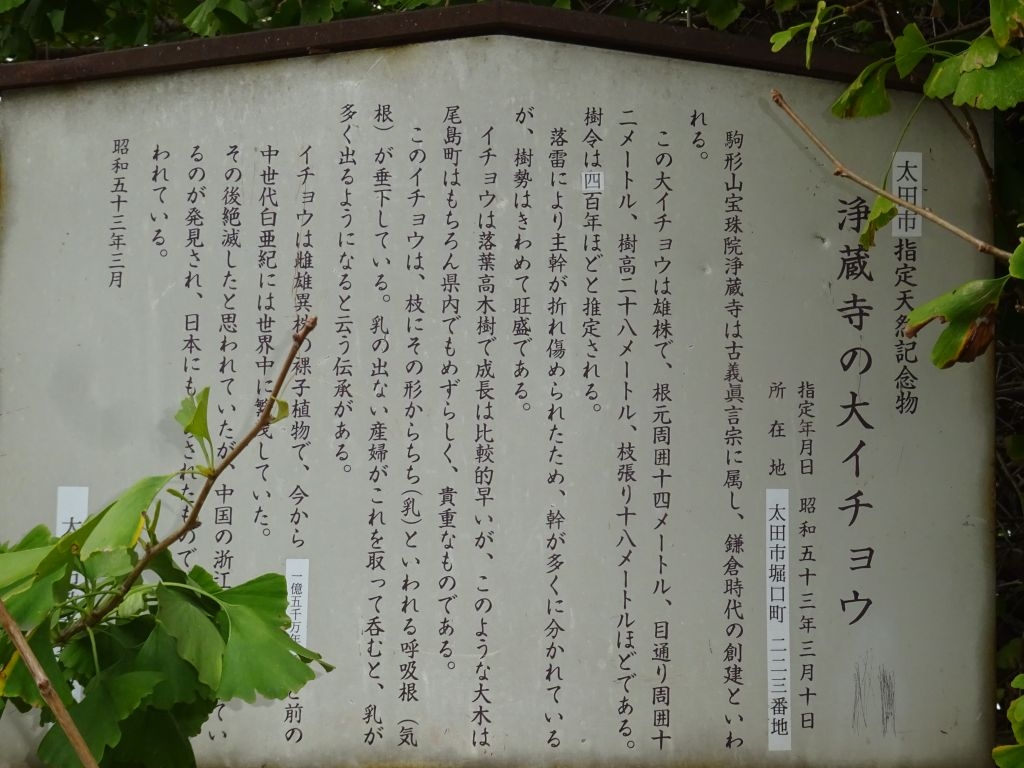 太田市指定天然記念物
浄蔵寺の大イチョウ
指定年月日 昭和五十三年三月十日
所在地 太田市堀口町 二二三番地
駒形山宝珠院浄蔵寺は古義眞言宗に属し、鎌倉時代の創建といわ
れる。
この大イチョウは雄株で、根元周囲十四メートル、目通り周囲十
二メートル、樹高二十八メートル、枝張り十八メートルほどである。
樹令は四百年ほどと推定される。
落雷により主幹が折れ傷められたため、幹が多くに分かれている
が、樹勢はきわめて旺盛である。
イチョウは落葉高木樹で成長は比較的早いが、このような大木は
尾島町はもちろん県内でもめずらしく、貴重なものである。
このイチョウは、枝にその形からちち(乳)といわれる呼吸根(気
根)が垂下している。乳の出ない産婦がこれを取って呑むと、乳が
多く出るようになると云う伝承がある。
イチョウは雌雄異株の裸子植物で、今から一億五千万年 前の
中世代白亜紀には世界中に繁茂していた。
その後絶滅したと思われていたが、中国の浙江 てい
るのが発見され、日本にも されたもので
われている。
昭和五十三年三月
太